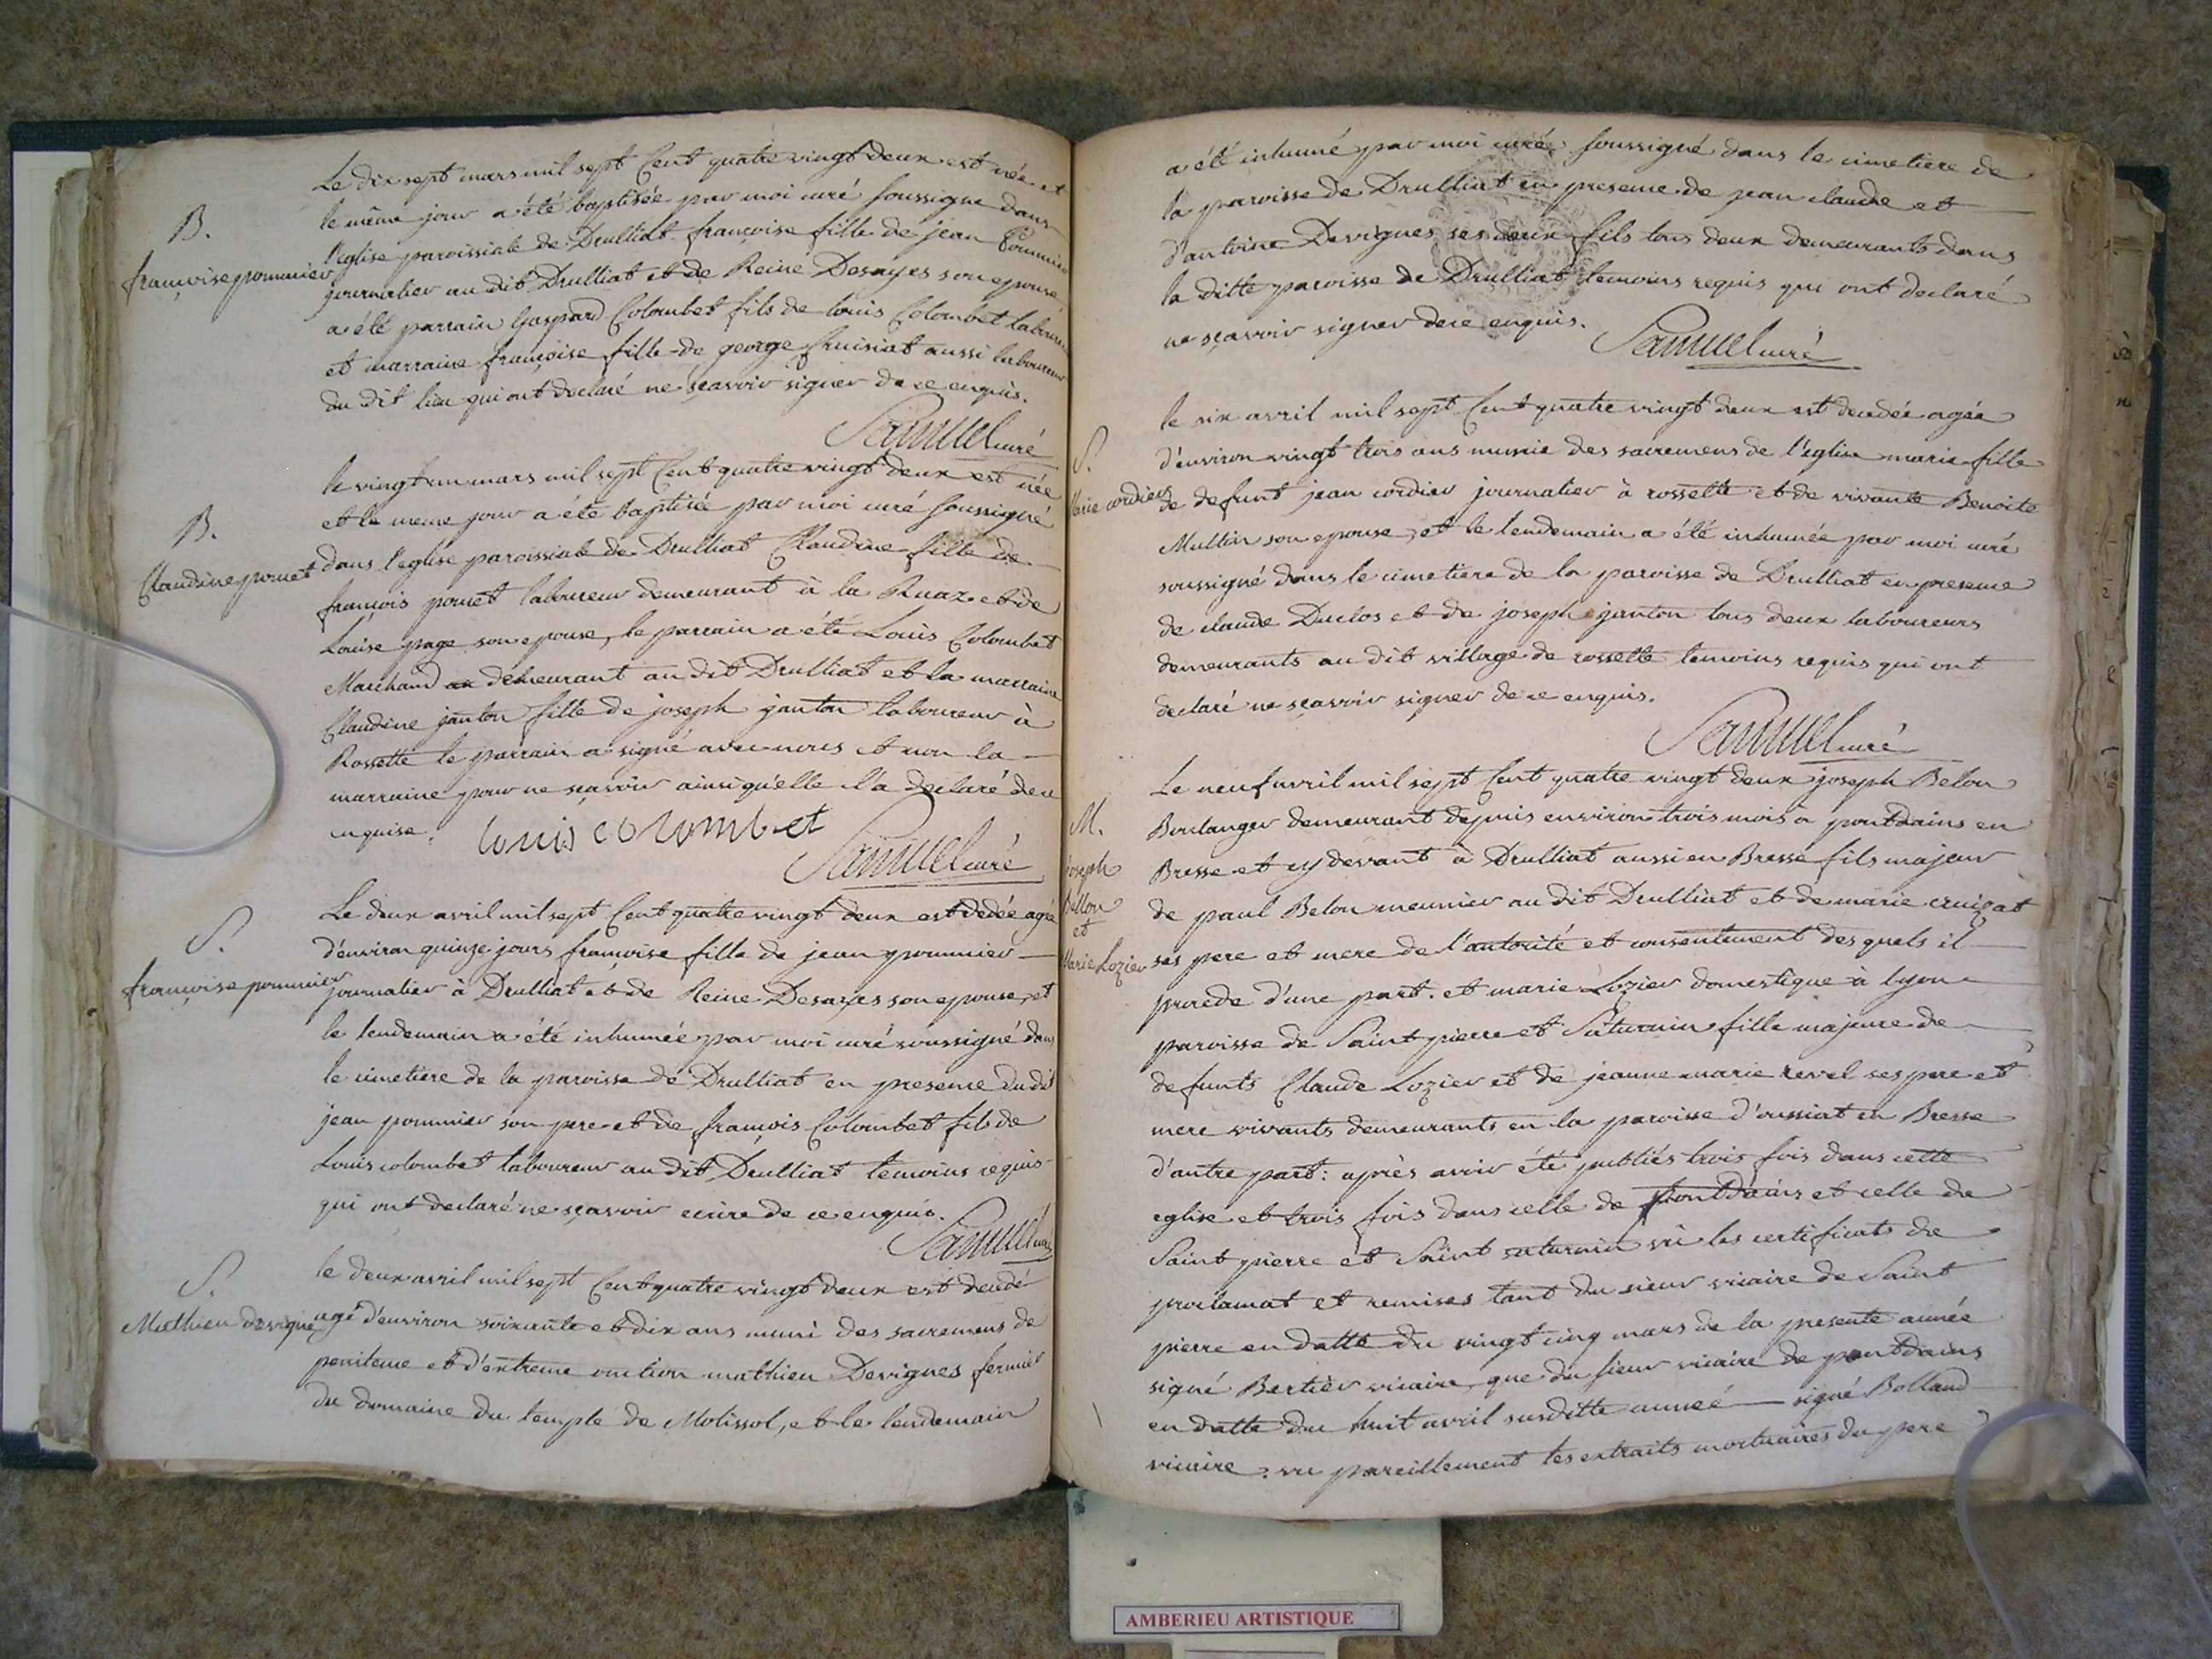 Le dix sept mars mil sept Cent quatre vingt deux est née et
le même jour a été baptisée par moi curé soussigné dans
B.
l'eglise paroissiale de Drulliat françoise fille de jean Pommier
françoise pommier
journalier au dit Drulliat et de Reine Desayes son epouse
a été parrain Gaspard Colombet fils de louis Colombet laboureur
et marraine françoise fille de george Cruisiat aussi laboureur
du dit lieu qui ont declaré ne sçavoir signer de ce enquis.
Samuel curé
le vingt un mars mil sept Cent quatre vingt deux est née
et le meme jour a été baptisée par moi curé soussigné
B.
dans l'eglise paroissiale de Drulliat Claudine fille de
Claudine ponet
françois ponet laboureur demeurant à la Ruaz et de
Louise page son epouse, le parrain a été Louis Colombet
Marchand demeurant au dit Drulliat et la marraine
Claudine janton fille de joseph janton laboureur à
Rossette le parrain a signé avec nous et non la
marraine pour ne sçavoir ainsi qu'elle l'a declaré de ce
enquise.
louis colombet
Samuel curé
Le deux avril mil sept Cent quatre vingt deux est dedée agée
S.
d'environ quinze jours françoise fille de jean pommier
françoise pommier
journalier à Drulliat et de Reine Desayes son epouse, et
le lendemain a été inhumée par moi curé soussigné dans
le cimetiere de la paroisse de Drulliat en presence du dit
jean pommier son pere et de françois Colombet fils de
Louis colombet laboureur au dit Drulliat temoins requis
qui ont declaré ne sçavoir ecrire de ce enquis.
Samuel curé
le deux avril mil sept Cent quatre vingt deux est decedé
S.
Mathieu devigne
agé d'environ soixante et dix ans muni des sacremens de
penitence et d'extreme onction mathieu Devignes fermier
du domaine du temple de Molissol, et le lendemain
a été inhumé par moi curé soussigné dans le cimetiere de
la paroisse de Drulliat en presence de jean claude et
d'antoine Devignes ses deux fils tous deux demeurants dans
la ditte paroisse de Drulliat temoins requis qui ont declaré
ne sçavoir signer de ce enquis.
Samuel curé
le six avril mil sept Cent quatre vingt deux est decedée agée
S.
d'environ vingt trois ans munie des sacremens de l'eglise marie fille
Marie cordier
de defunt jean cordier journalier à rossette et de vivante Benoite
Multin son epouse, et le lendemain a été inhumée par moi curé
soussigné dans le cimetiere de la paroisse de Drulliat en presence
de claude Duclos et de joseph janton tous deux laboureurs
demeurants au dit village de rossette temoins requis qui ont
declaré ne sçavoir signer de ce enquis.
Samuel curé
Le neuf avril mil sept Cent quatre vingt deux joseph Belon
M.
Boulanger demeurant depuis environ trois mois à pontdains en
joseph
Bresse et cy devant à Drulliat aussi en Bresse fils majeur
Billon
de paul Belon meunier au dit Drulliat et de marie cruizat
et
Marie Lozier
ses pere et mere de l'autorité et consentement des quels il
procede d'une part. et marie Lozier domestique à lyon
paroisse de Saint pierre et Saturnin fille majeure de
defunts Claude Lozier et de jeanne marie revel ses pere et
mere vivants demeurants en la paroisse d'oussiat en Bresse
d'autre part: après avoir été publiés trois fois dans cette
eglise et trois fois dans celle de pontdains et celle de
Saint pierre et Saint saturnin vu les certificats de
proclamat et remises tant du sieur vicaire de Saint
pierre en datte du vingt cinq mars de la presente année
signé Bertier vicaire, que du sieur vicaire de pontdains
en datte du huit avril susditte année signé Bolland
vicaire. vu pareillement les extraits mortuaires du pere
AMBERIEU ARTISTIQUE